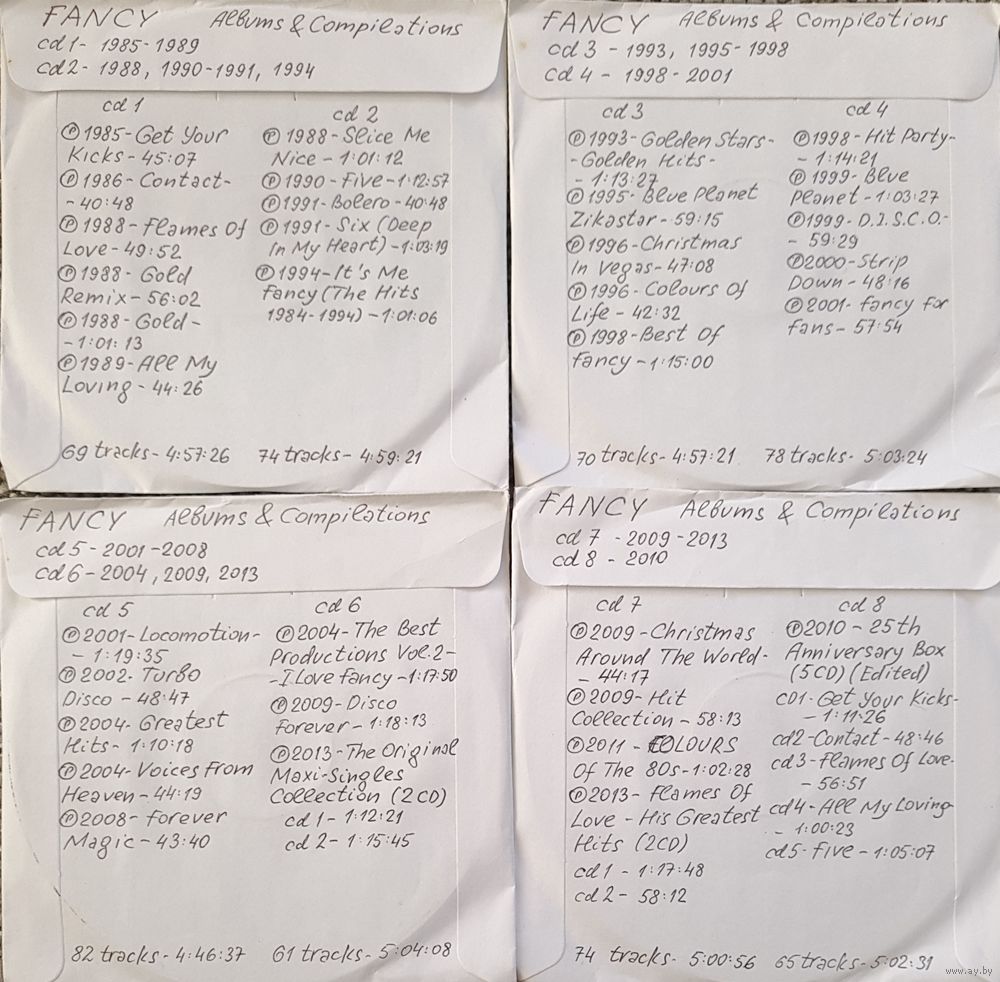 FANCY Albums & Compilations
cd 1 - 1985-1989
cd 2 - 1988, 1990-1991, 1994
cd 1
Ⓟ 1985-Get Your
Kicks - 45:07
Ⓟ 1986 - Contact-
- 40:48
Ⓟ 1988 - Flames Of
Love - 49:52
Ⓟ 1988 - Gold
Remix - 56:02
Ⓟ 1988 - Gold -
- 1:01:13
Ⓟ 1989 - All My
Loving - 44:26
69 tracks - 4:57:26
cd 2
Ⓟ 1988 - Slice Me
Nice - 1:01:12
Ⓟ 1990 - Five - 1:12:57
Ⓟ 1991 - Bolero - 40:48
Ⓟ 1991 - Six (Deep
In My Heart) - 1:03:19
Ⓟ 1994 - It's Me
Fancy (The Hits
1984-1994) - 1:01:06
74 tracks - 4:59:21
FANCY Albums & Compilations
cd 3 - 1993, 1995-1998
cd 4 - 1998-2001
cd 3
Ⓟ 1993 - Golden Stars-
- Golden Hits -
- 1:13:27
Ⓟ 1995 - Blue Planet
Zikastar - 59:15
Ⓟ 1996 - Christmas
In Vegas - 47:08
Ⓟ 1996 - Colours Of
Life - 42:32
Ⓟ 1998 - Best Of
Fancy - 1:15:00
70 tracks - 4:57:21
cd 4
Ⓟ 1998 - Hit Party-
- 1:14:21
Ⓟ 1999 - Blue
Planet - 1:03:27
Ⓟ 1999 - D.I.S.C.O.-
- 59:29
Ⓟ 2000 - Strip
Down - 48:16
Ⓟ 2001 - Fancy For
Fans - 57:54
78 tracks - 5:03:24
FANCY Albums & Compilations
cd 5 - 2001-2008
cd 6 - 2004, 2009, 2013
cd 5
Ⓟ 2001 - Locomotion-
- 1:19:35
Ⓟ 2002 - Turbo
Disco - 48:47
Ⓟ 2004 - Greatest
Hits - 1:10:18
Ⓟ 2004 - Voices From
Heaven - 44:19
Ⓟ 2008 - Forever
Magic - 43:40
82 tracks - 4:46:37
cd 6
Ⓟ 2004 - The Best
Productions Vol. 2 -
- I Love Fancy - 1:17:50
Ⓟ 2009 - Disco
Forever - 1:18:13
Ⓟ 2013 - The Original
Maxi-Singles
Collection (2 CD)
cd 1 - 1:12:21
cd 2 - 1:15:45
61 tracks - 5:04:08
FANCY Albums & Compilations
cd 7 - 2009-2013
cd 8 - 2010
cd 7
Ⓟ 2009 - Christmas
Around The World -
- 44:17
Ⓟ 2009 - Hit
Collection - 58:13
Ⓟ 2011 - COLOURS
Of The 80s - 1:02:28
Ⓟ 2013 - Flames Of
Love - His Greatest
Hits (2CD)
cd 1 - 1:17:48
cd 2 - 58:12
74 tracks - 5:00:56
cd 8
Ⓟ 2010 - 25th
Anniversary Box
(5 CD) (Edited)
CD1 - Get Your Kicks-
- 1:11:26
cd2 - Contact - 48:46
cd3 - Flames Of Love-
- 56:51
cd4 - All My Loving-
- 1:00:23
cd5 - Five - 1:05:07
65 tracks - 5:02:31
www.ay.by